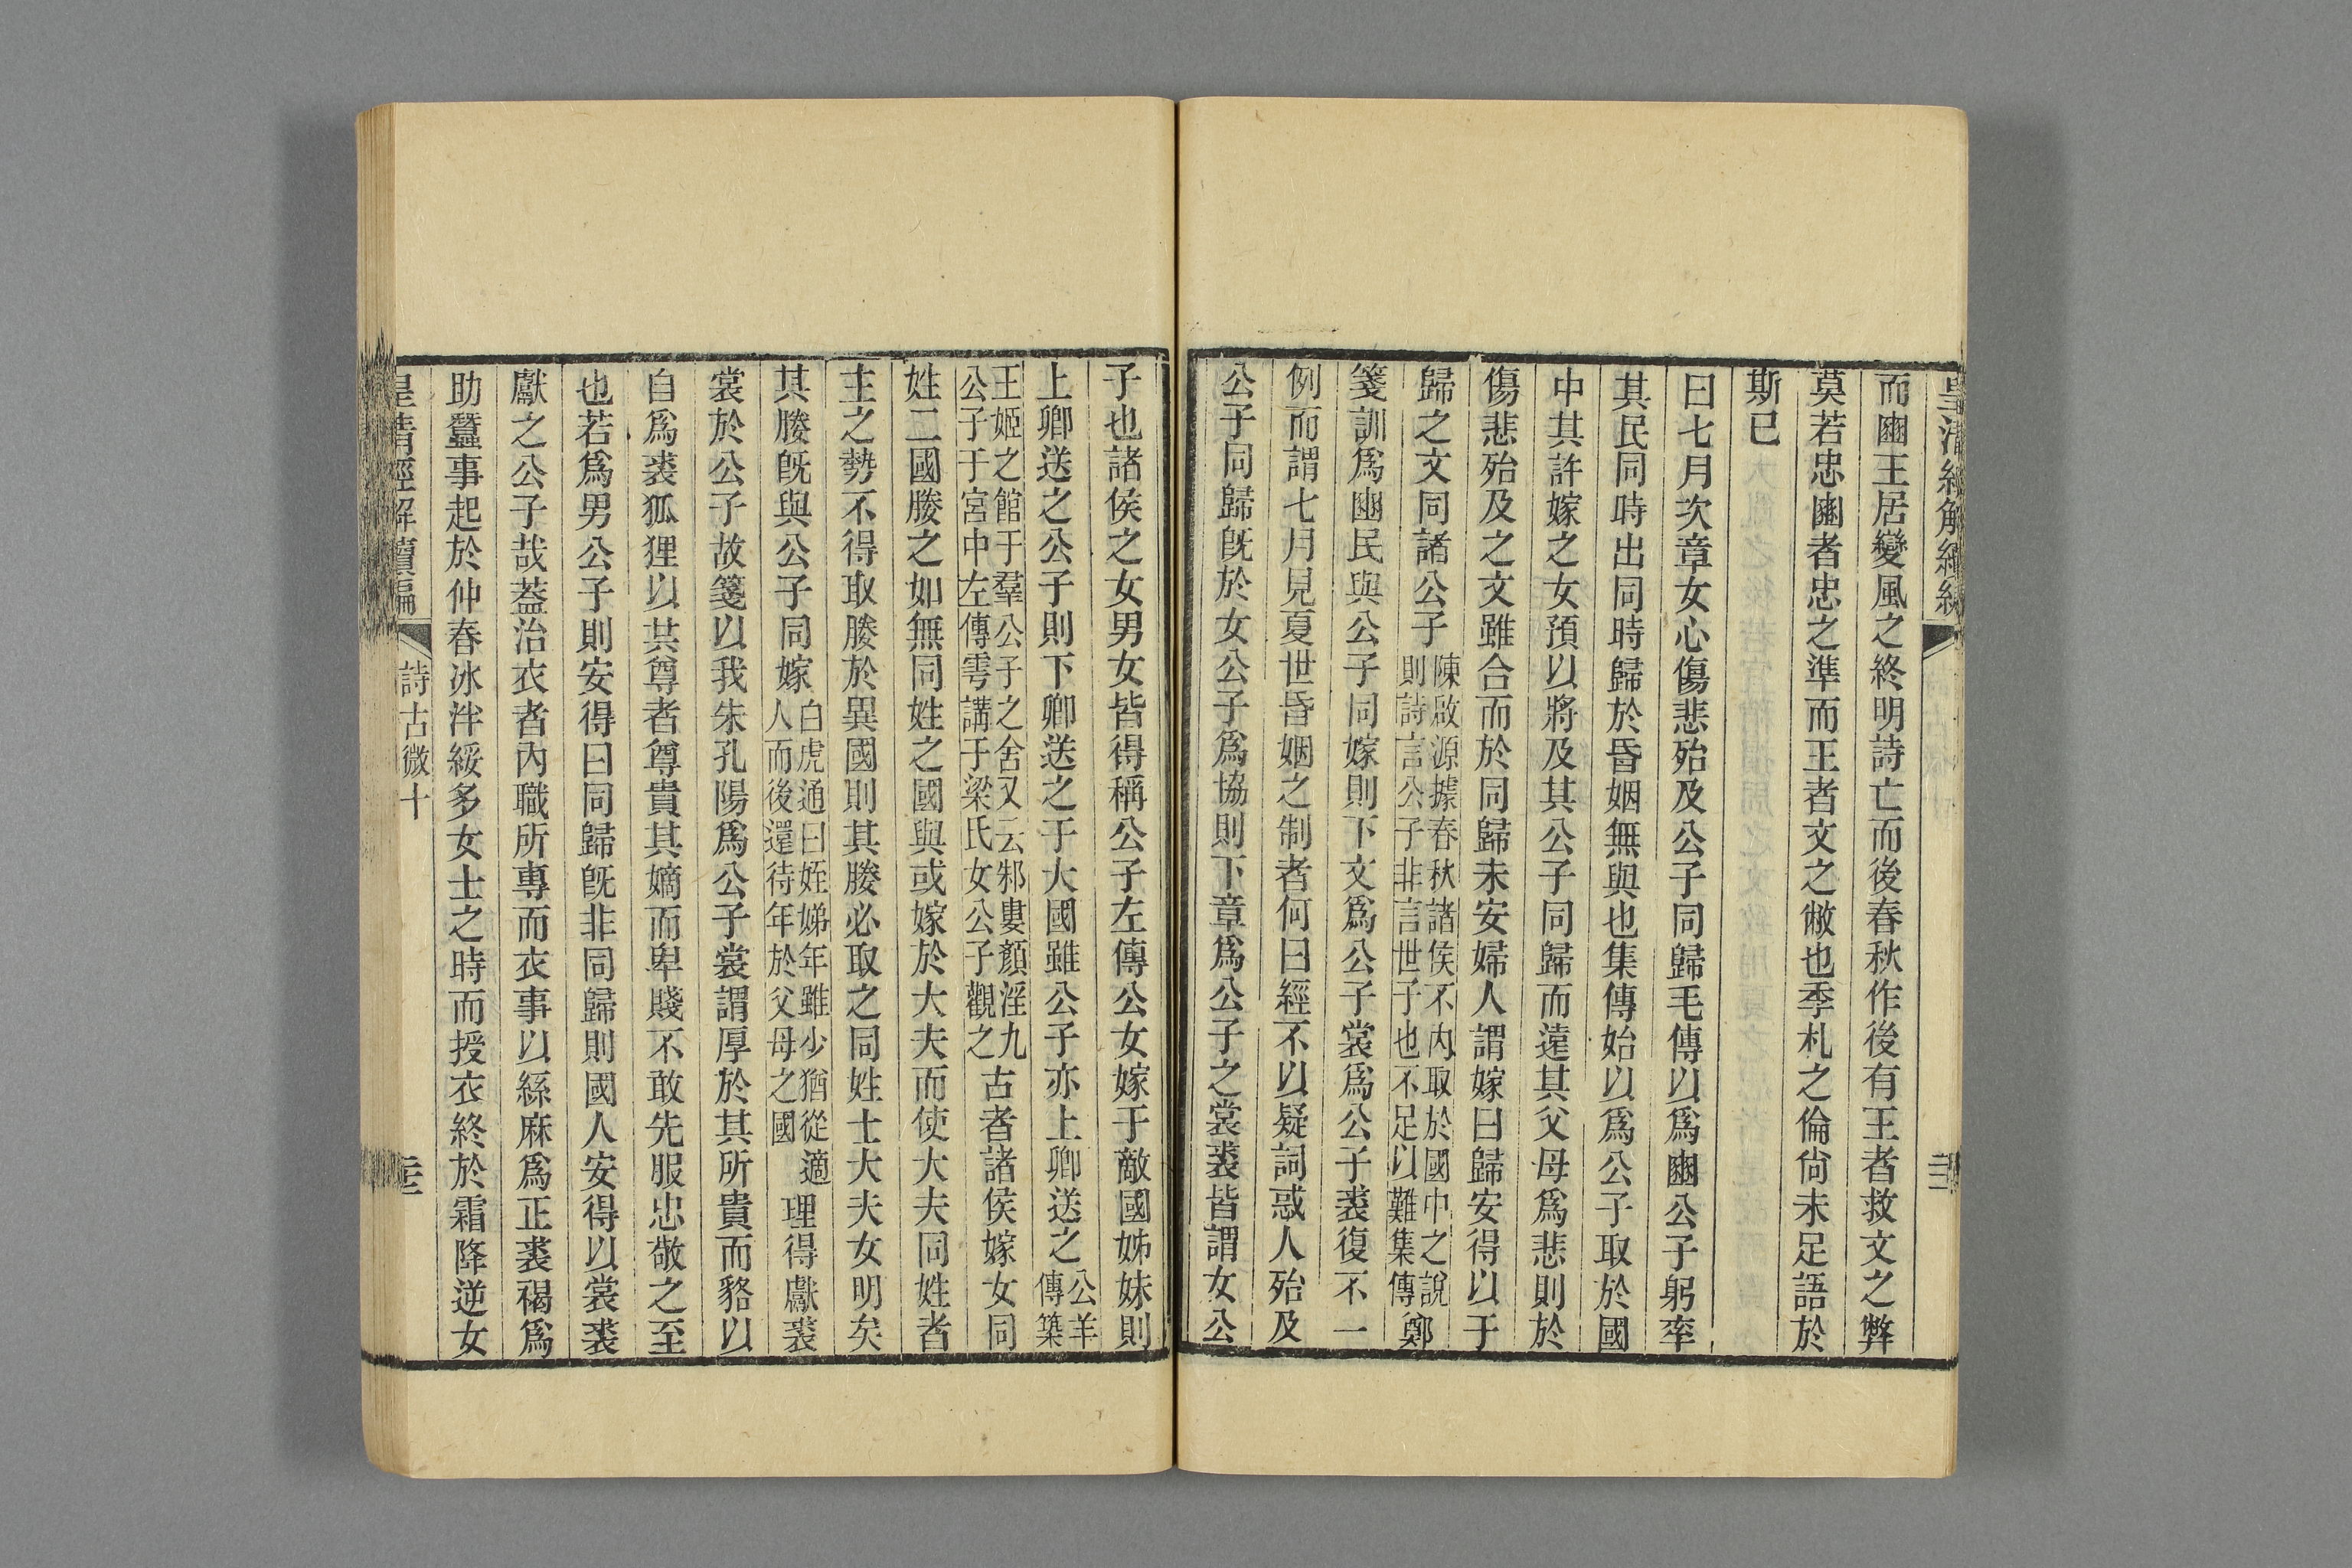 皇清經解續編
而豳王居變風之終明詩亡而後春秋作後有王者救文之弊
莫若忠豳者忠之準而王者文之敝也季札之倫尙未足語於
斯已
曰七月次章女心傷悲殆及公子同歸毛傳以爲豳公子躬率
其民同時出同時歸於昏姻無與也集傳始以爲公子取於國
中其許嫁之女預以將及其公子同歸而遠其父母爲悲則於
傷悲殆及之文雖合而於同歸未安婦人謂嫁曰歸安得以于
歸之文同諸公子陳啟源據春秋諸侯不內取於國中之說則詩言公子非言世子也不足以難集傳鄭
箋訓爲豳民與公子同嫁則下文爲公子裳爲公子裘復不一
例而謂七月見夏世昏姻之制者何曰經不以疑詞惑人殆及
公子同歸旣於女公子爲協則下章爲公子之裳裘皆謂女公
子也諸侯之女男女皆得稱公子左傳公女嫁于敵國姊妹則
上卿送之公子則下卿送之于大國雖公子亦上卿送之公羊傳築
王姬之館于羣公子之舍又云邾婁顏淫九公子于宮中左傳雩講于梁氏女公子觀之古者諸侯嫁女同
姓二國媵之如無同姓之國與或嫁於大夫而使大夫同姓者
主之勢不得取媵於異國則其媵必取之同姓士大夫女明矣
其媵旣與公子同嫁白虎通曰姪娣年雖少猶從適人而後還待年於父母之國理得獻裘
裳於公子故箋以我朱孔陽爲公子裳謂厚於其所貴而貉以
自爲裘狐狸以其尊者尊貴其嫡而卑賤不敢先服忠敬之至
也若爲男公子則安得曰同歸旣非同歸則國人安得以裳裘
獻之公子哉蓋治衣者內職所專而衣事以絲麻爲正裘褐爲
助蠶事起於仲春冰泮綏多女士之時而授衣終於霜降逆女
皇清經解續編
詩古微十